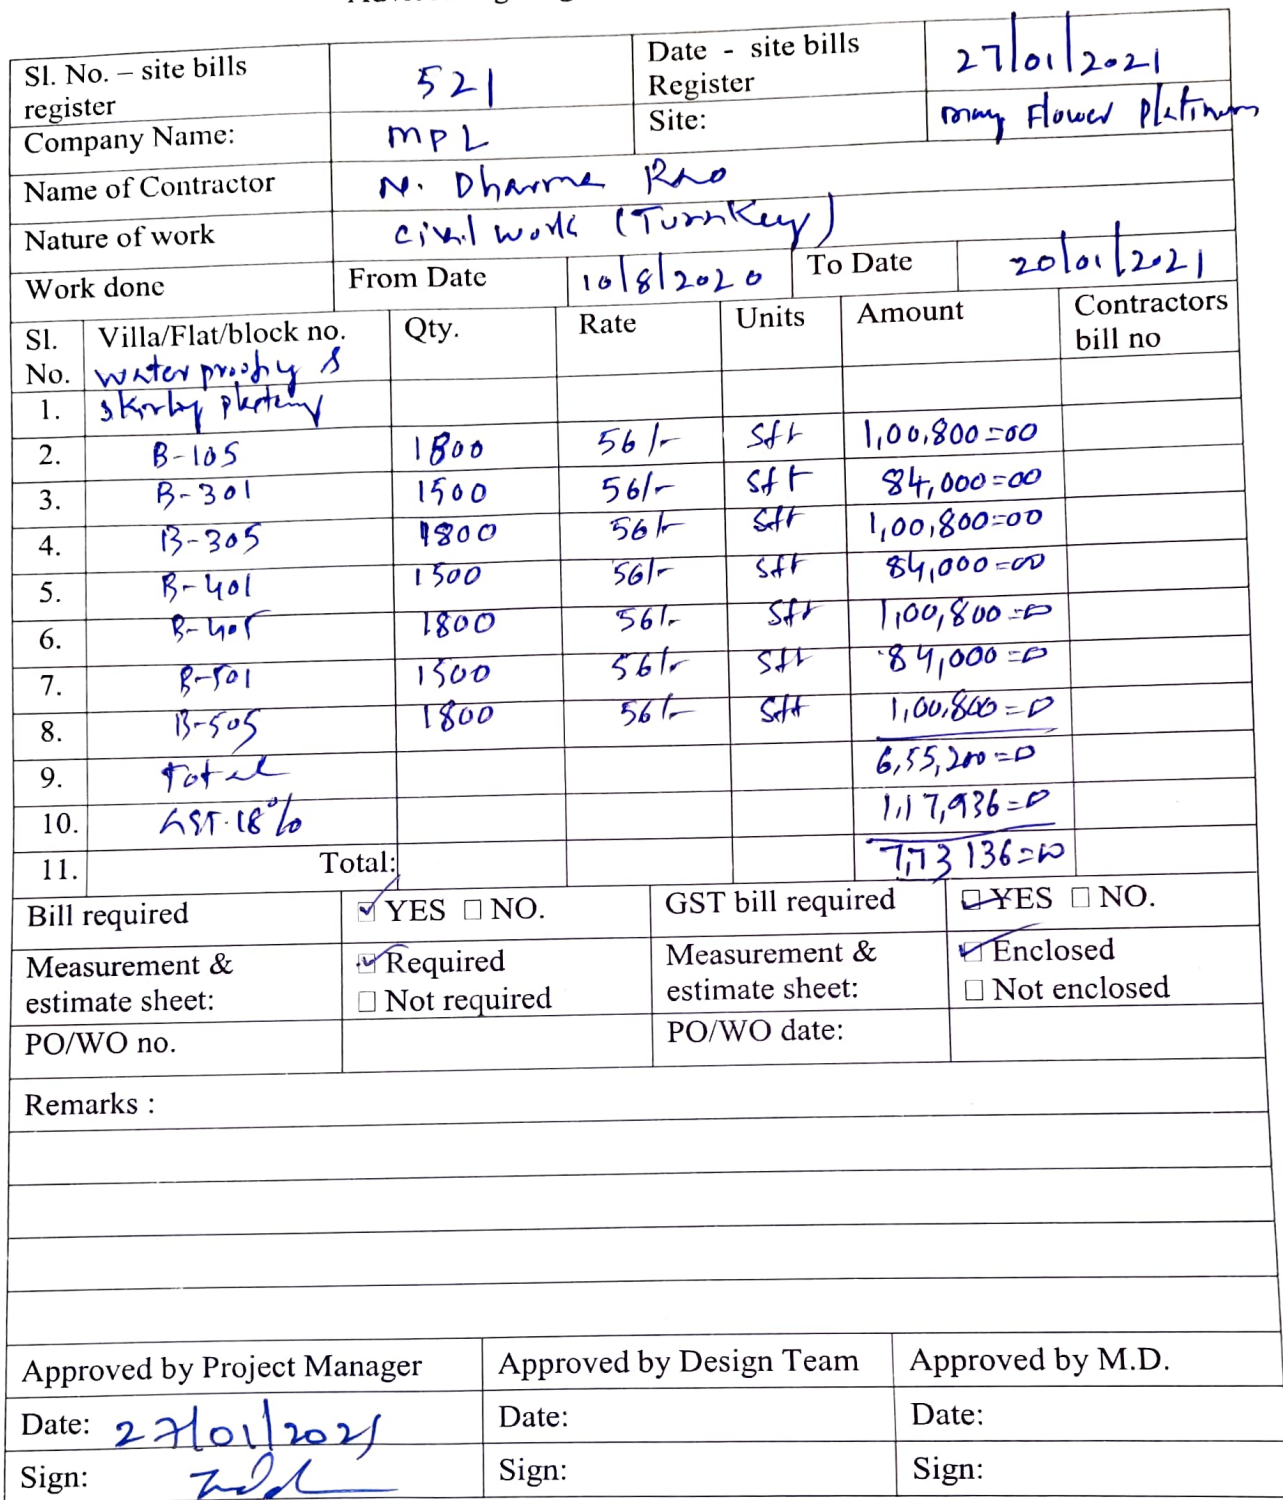 Sl. No. – site bills register 521 Date - site bills Register 27/01/2021
Company Name: MPL Site: may Flower Platinum
Name of Contractor N. Dharma Rao
Nature of work civil work (Turnkey)
Work done From Date 10/8/2020 To Date 20/01/2021
Sl. No. Villa/Flat/block no. Qty. Rate Units Amount Contractors bill no
water proofing &
1.
2. B-105 1800 56/- Sft 1,00,800=00
3. B-301 1500 56/- Sft 84,000=00
4. B-305 1800 56/- Sft 1,00,800=00
5. B-401 1500 56/- Sft 84,000=00
6. B-405 1800 56/- Sft 1,00,800=0
7. B-501 1500 56/- Sft 84,000=0
8. B-505 1800 56/- Sft 1,00,800=0
9. Total 6,55,200=0
10. GST-18% 1,17,936=0
11. Total: 7,73 136=00
Bill required ☑ YES □ NO. GST bill required □ YES □ NO.
Measurement & estimate sheet: ☑ Required □ Not required Measurement & estimate sheet: ☑ Enclosed □ Not enclosed
PO/WO no. PO/WO date:
Remarks :
Approved by Project Manager Approved by Design Team Approved by M.D.
Date: 27/01/2021 Date: Date:
Sign: Sign: Sign: